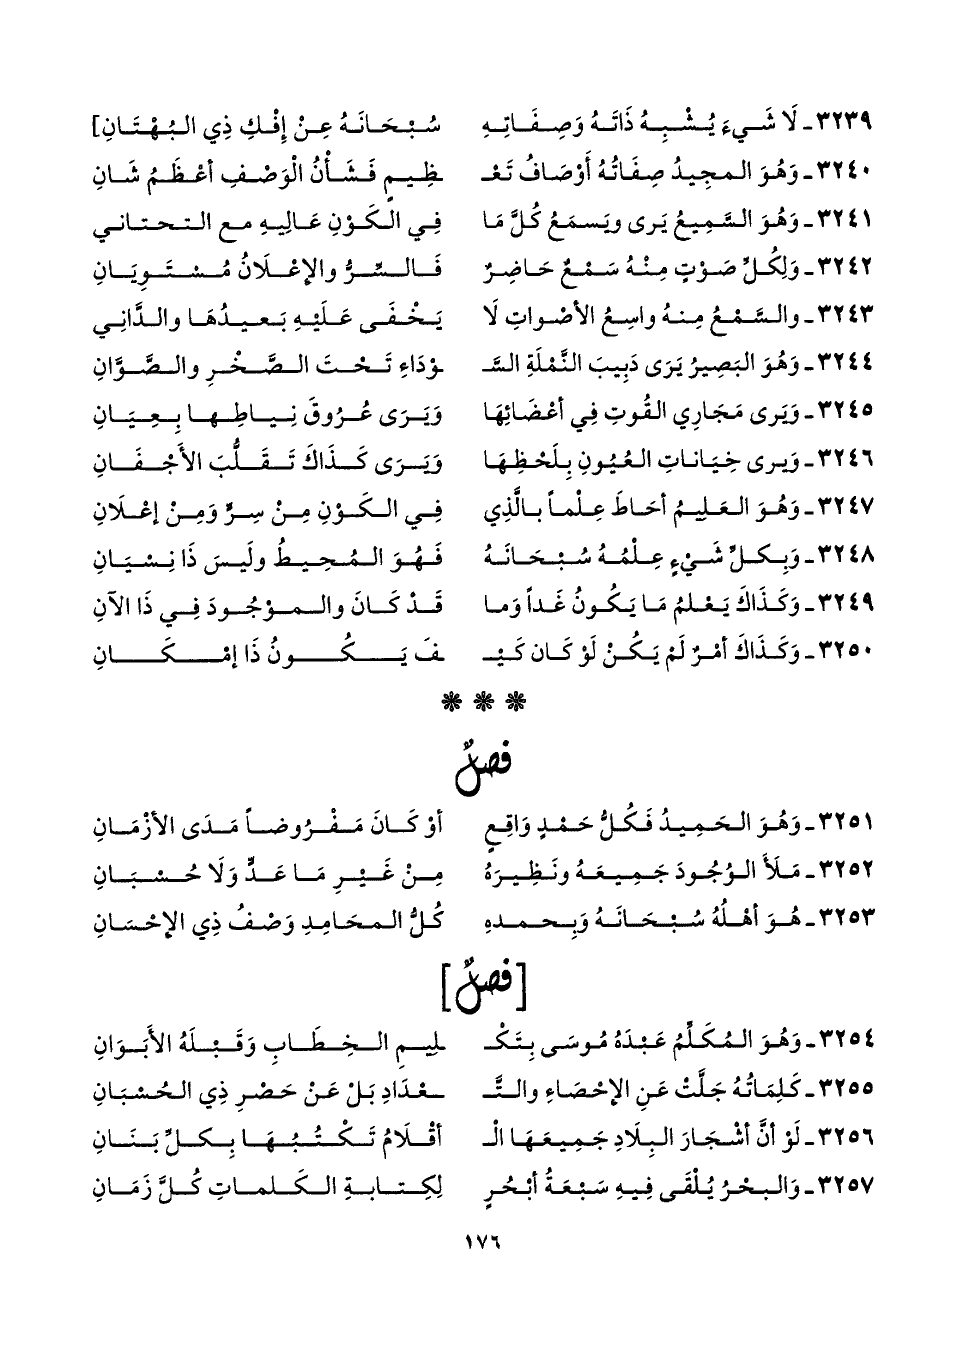 ٣٢٣٩ـ لَا شَيءَ يُشْبِهُ ذَاتَهُ وَصِفَاتِهِ سُبْحَانَهُ عِنْ إِفْكِ ذِي البُهْتَانِ]
٣٢٤٠ـ وَهُوَ المجِيدُ صِفَاتُهُ أَوْصَافُ تَعْـ ـظِيمٍ فَشَأْنُ الْوَصْفِ أعْظَمُ شَانِ
٣٢٤١ـ وَهُوَ السَّمِيعُ يَرى ويَسمَعُ كُلَّ مَا فِي الكَوْنِ عَالِيهِ مع التحتاني
٣٢٤٢ـ وَلِكُلِّ صَوْتٍ مِنْهُ سَمْعٌ حَاضِرٌ فَالسِّرُّ والإعْلَانُ مُسْتَوِيَانِ
٣٢٤٣ـ والسَّمْعُ مِنهُ واسِعُ الأصْواتِ لَا يَخْفَى عَلَيْهِ بَعيدُهَا والدَّانِي
٣٢٤٤ـ وَهُوَ البَصِيرُ يَرَى دَبِيبَ النَّمْلَةِ السَّـ ـوْدَاءِ تَحْتَ الصَّخْرِ والصَّوَّانِ
٣٢٤٥ـ وَيَرى مَجَارِي القُوتِ فِي أعْضَائِهَا وَيَرَى عُرُوقَ نِيَاطِهَا بِعِيَانِ
٣٢٤٦ـ وَيرى خِيَانَاتِ العُيُونِ بِلَحْظِهَا وَيَرَى كَذَاكَ تَقَلُّبَ الأجْفَانِ
٣٢٤٧ـ وَهُوَ العَلِيمُ أحَاطَ عِلْماً بالَّذِي فِي الكَوْنِ مِنْ سِرٍّ وَمِنْ إعْلَانِ
٣٢٤٨ـ وَبِكلِّ شَيْءٍ عِلْمُهُ سُبْحَانَهُ فَهُوَ المُحِيطُ ولَيسَ ذَا نِسْيَانِ
٣٢٤٩ـ وَكَذَاكَ يَعْلمُ مَا يَكُونُ غَداً وَما قَدْ كَانَ والموْجُودَ فِي ذَا الآنِ
٣٢٥٠ـ وَكَذَاكَ أمْرٌ لَمْ يَكُنْ لَوْ كَان كَيْـ ـفَ يَكُونُ ذَا إمْكَانِ
❋ ❋ ❋
فصلٌ
٣٢٥١ـ وَهُوَ الحَمِيدُ فَكُلُّ حَمْدٍ وَاقِعٍ أوْ كَانَ مَفْرُوضاً مَدَى الأزْمَانِ
٣٢٥٢ـ مَلَأَ الوُجُودَ جَمِيعَهُ ونَظِيرَهُ مِنْ غَيْرِ مَا عَدٍّ وَلَا حُسْبَانِ
٣٢٥٣ـ هُوَ أهْلُهُ سُبْحَانَهُ وَبِحمدهِ كُلُّ المحَامِدِ وَصْفُ ذِي الإحْسَانِ
[فصلٌ]
٣٢٥٤ـ وَهُوَ المُكَلِّمُ عَبْدَهُ مُوسَى بِتَكْـ ـلِيمِ الخِطَابِ وَقَبْلَهُ الأبَوَانِ
٣٢٥٥ـ كَلِمَاتُهُ جَلَّتْ عَنِ الإحْصَاءِ والتَّـ ـعْدَادِ بَلْ عَنْ حَصْرِ ذِي الحُسْبَانِ
٣٢٥٦ـ لَوْ أنَّ أشْجَارَ البِلَادِ جَمِيعَهَا الْـ أقْلَامُ تَكْتُبُهَا بِكلِّ بَنَانِ
٣٢٥٧ـ وَالبحْرُ يُلْقَى فِيهِ سَبْعَةُ أبْحُرٍ لِكِتابةِ الكَلماتِ كُلَّ زَمَانِ
١٧٦